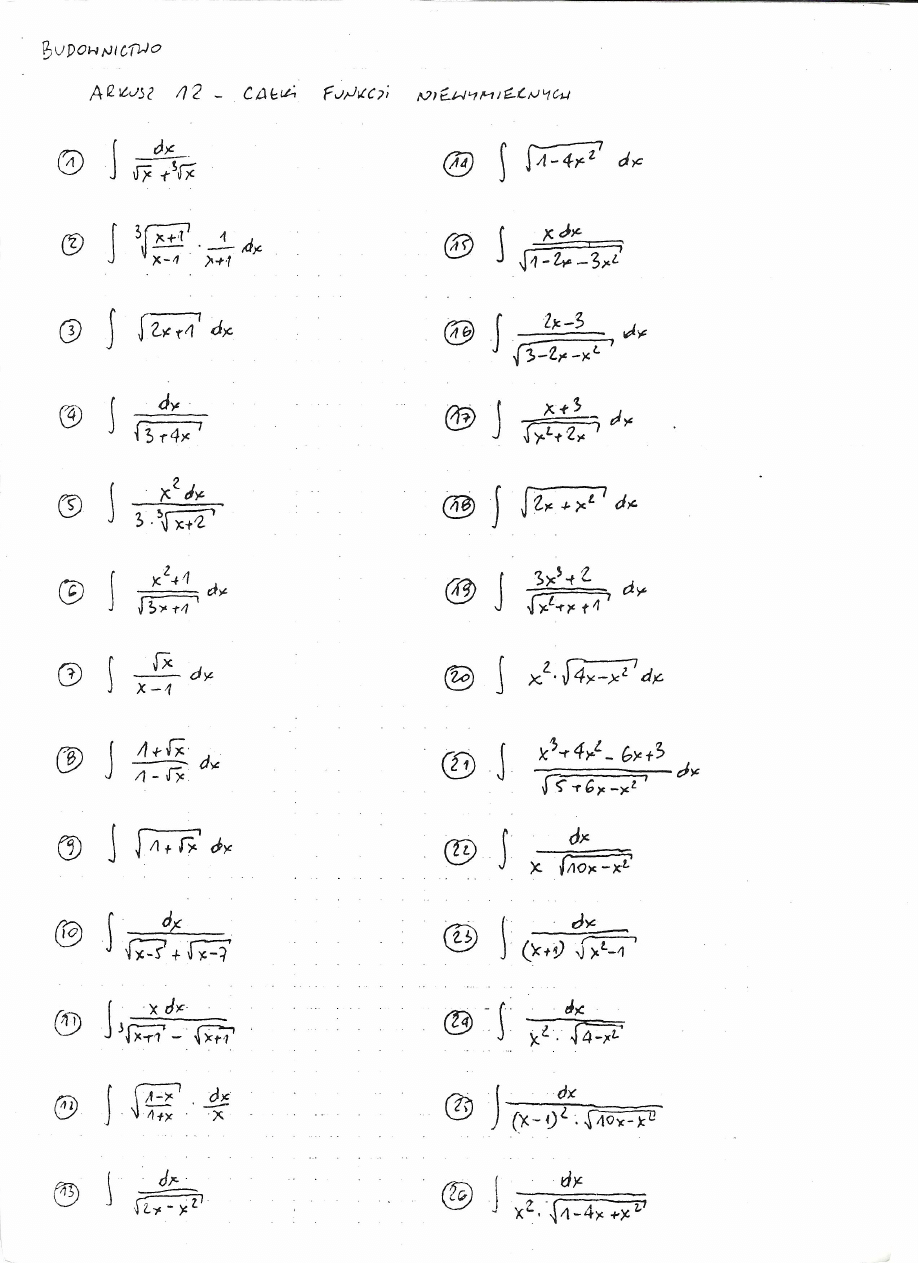 BUDOWNICTWO
ARKUSZ 12 - CAŁKI FUNKCJI NIEWYMIERNYCH
① ∫ dx / (√x + ³√x)
② ∫ ³√((x+1)/(x-1)) · 1/(x+1) dx
③ ∫ √(2x+1) dx
④ ∫ dx / √(3+4x)
⑤ ∫ x² dx / (3·³√(x+2))
⑥ ∫ (x²+1) / √(3x+1) dx
⑦ ∫ √x / (x-1) dx
⑧ ∫ (1+√x) / (1-√x) dx
⑨ ∫ √(1+√x) dx
⑩ ∫ dx / (√(x-5) + √(x-7))
⑪ ∫ x dx / (³√(x+1) - √(x+1))
⑫ ∫ √((1-x)/(1+x)) · dx/x
⑬ ∫ dx / √(2x-x²)
⑭ ∫ √(1-4x²) dx
⑮ ∫ x dx / √(1-2x-3x²)
⑯ ∫ (2x-3) / √(3-2x-x²) dx
⑰ ∫ (x+3) / √(x²+2x) dx
⑱ ∫ √(2x+x²) dx
⑲ ∫ (3x³+2) / √(x²+x+1) dx
⑳ ∫ x²·√(4x-x²) dx
㉑ ∫ (x³+4x²-6x+3) / √(5+6x-x²) dx
㉒ ∫ dx / (x √(10x-x²))
㉓ ∫ dx / ((x+1) √(x²-1))
㉔ ∫ dx / (x²·√(4-x²))
㉕ ∫ dx / ((x-1)²·√(10x-x²))
㉖ ∫ dx / (x²·√(1-4x+x²))